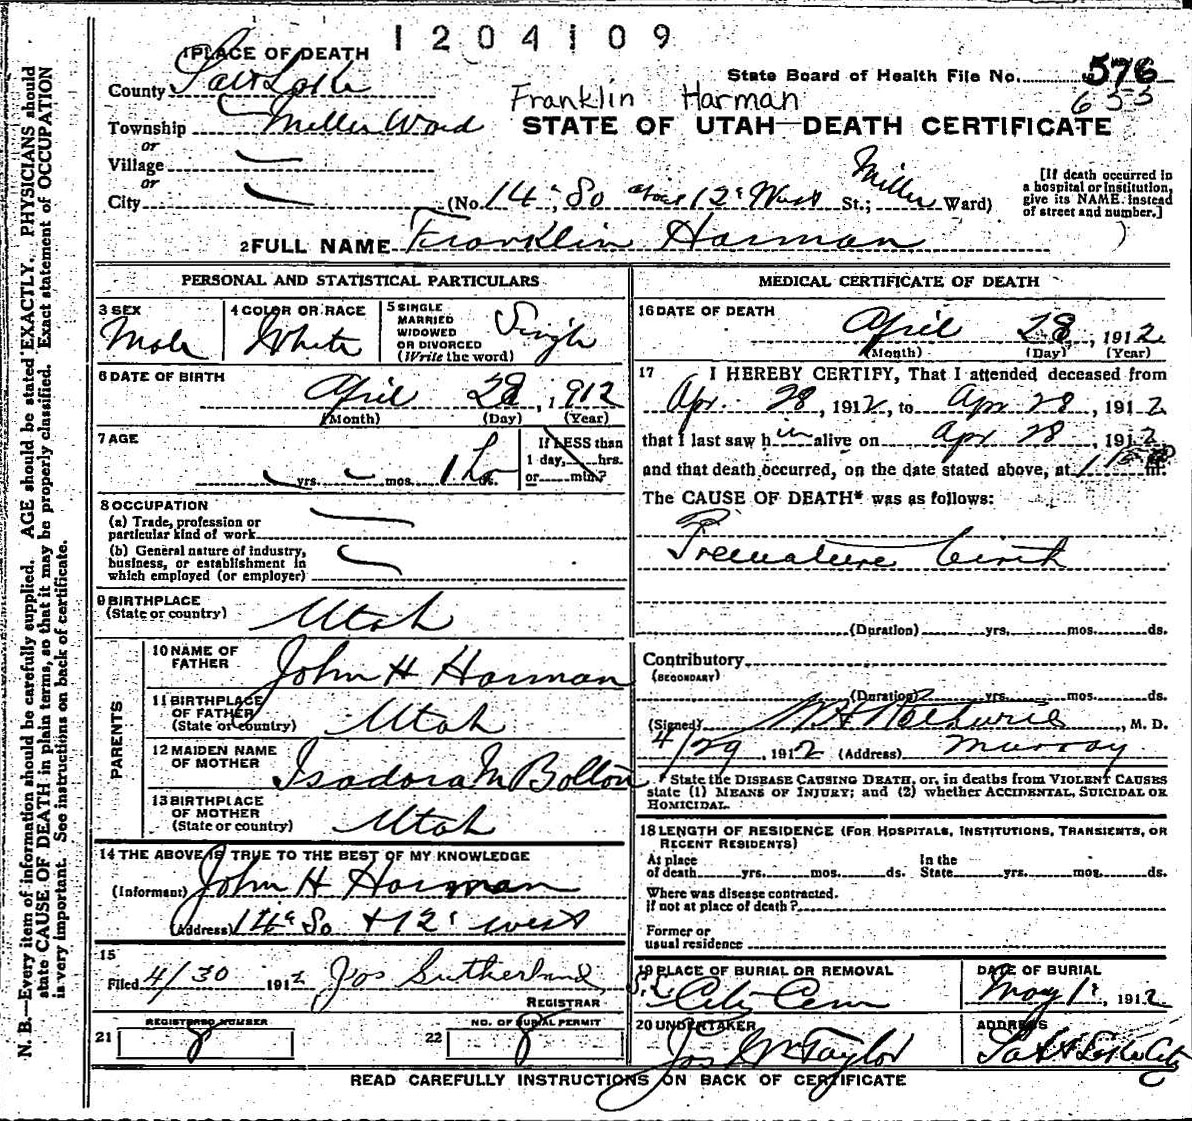 1204109
1 PLACE OF DEATH
State Board of Health File No. 576
653
County Salt Lake
Franklin Harman
Township Miller Ward
STATE OF UTAH—DEATH CERTIFICATE
or
Village
or
City (No. 14' So and 12' West St.; Miller Ward)
[If death occurred in a hospital or institution, give its NAME instead of street and number.]
2 FULL NAME Franklin Harman
PERSONAL AND STATISTICAL PARTICULARS
3 SEX
Male
4 COLOR OR RACE
White
5 SINGLE
MARRIED
WIDOWED
OR DIVORCED
(Write the word)
Single
6 DATE OF BIRTH
April 28, 1912
(Month) (Day) (Year)
7 AGE
yrs. mos. 1 ho
If LESS than
1 day, hrs.
or min?
8 OCCUPATION
(a) Trade, profession or
particular kind of work
(b) General nature of industry,
business, or establishment in
which employed (or employer)
9 BIRTHPLACE
(State or country) Utah
PARENTS
10 NAME OF
FATHER John H Harman
11 BIRTHPLACE
OF FATHER
(State or country) Utah
12 MAIDEN NAME
OF MOTHER Isadora M Bolton
13 BIRTHPLACE
OF MOTHER
(State or country) Utah
14 THE ABOVE IS TRUE TO THE BEST OF MY KNOWLEDGE
(Informant) John H Harman
(Address) 14' So + 12' west
15
Filed 4/30 1912 Jos Sutherland
REGISTRAR
21 REGISTERED NUMBER
8
22 NO. OF BURIAL PERMIT
8
MEDICAL CERTIFICATE OF DEATH
16 DATE OF DEATH
April 28, 1912
(Month) (Day) (Year)
17 I HEREBY CERTIFY, That I attended deceased from
Apr. 28, 1912, to Apr 28, 1912
that I last saw him alive on Apr 28, 1912
and that death occurred, on the date stated above, at m.
The CAUSE OF DEATH* was as follows:
Premature birth
(Duration) yrs. mos. ds.
Contributory
(SECONDARY)
(Duration) yrs. mos. ds.
(Signed) M. D.
4/29, 1912 (Address) Murray
* State the DISEASE CAUSING DEATH, or, in deaths from VIOLENT CAUSES
state (1) MEANS OF INJURY; and (2) whether ACCIDENTAL, SUICIDAL OR
HOMICIDAL.
18 LENGTH OF RESIDENCE (FOR HOSPITALS, INSTITUTIONS, TRANSIENTS, OR
RECENT RESIDENTS)
At place
of death yrs. mos. ds.
In the
State yrs. mos. ds.
Where was disease contracted.
If not at place of death?
Former or
usual residence
19 PLACE OF BURIAL OR REMOVAL
S.L. City Cem
DATE OF BURIAL
May 1', 1912
20 UNDERTAKER
Jos Wm Taylor
ADDRESS
Salt Lake City
READ CAREFULLY INSTRUCTIONS ON BACK OF CERTIFICATE
N. B.—Every item of information should be carefully supplied. AGE should be stated EXACTLY. PHYSICIANS should
state CAUSE OF DEATH in plain terms, so that it may be properly classified. Exact statement of OCCUPATION
is very important. See instructions on back of certificate.